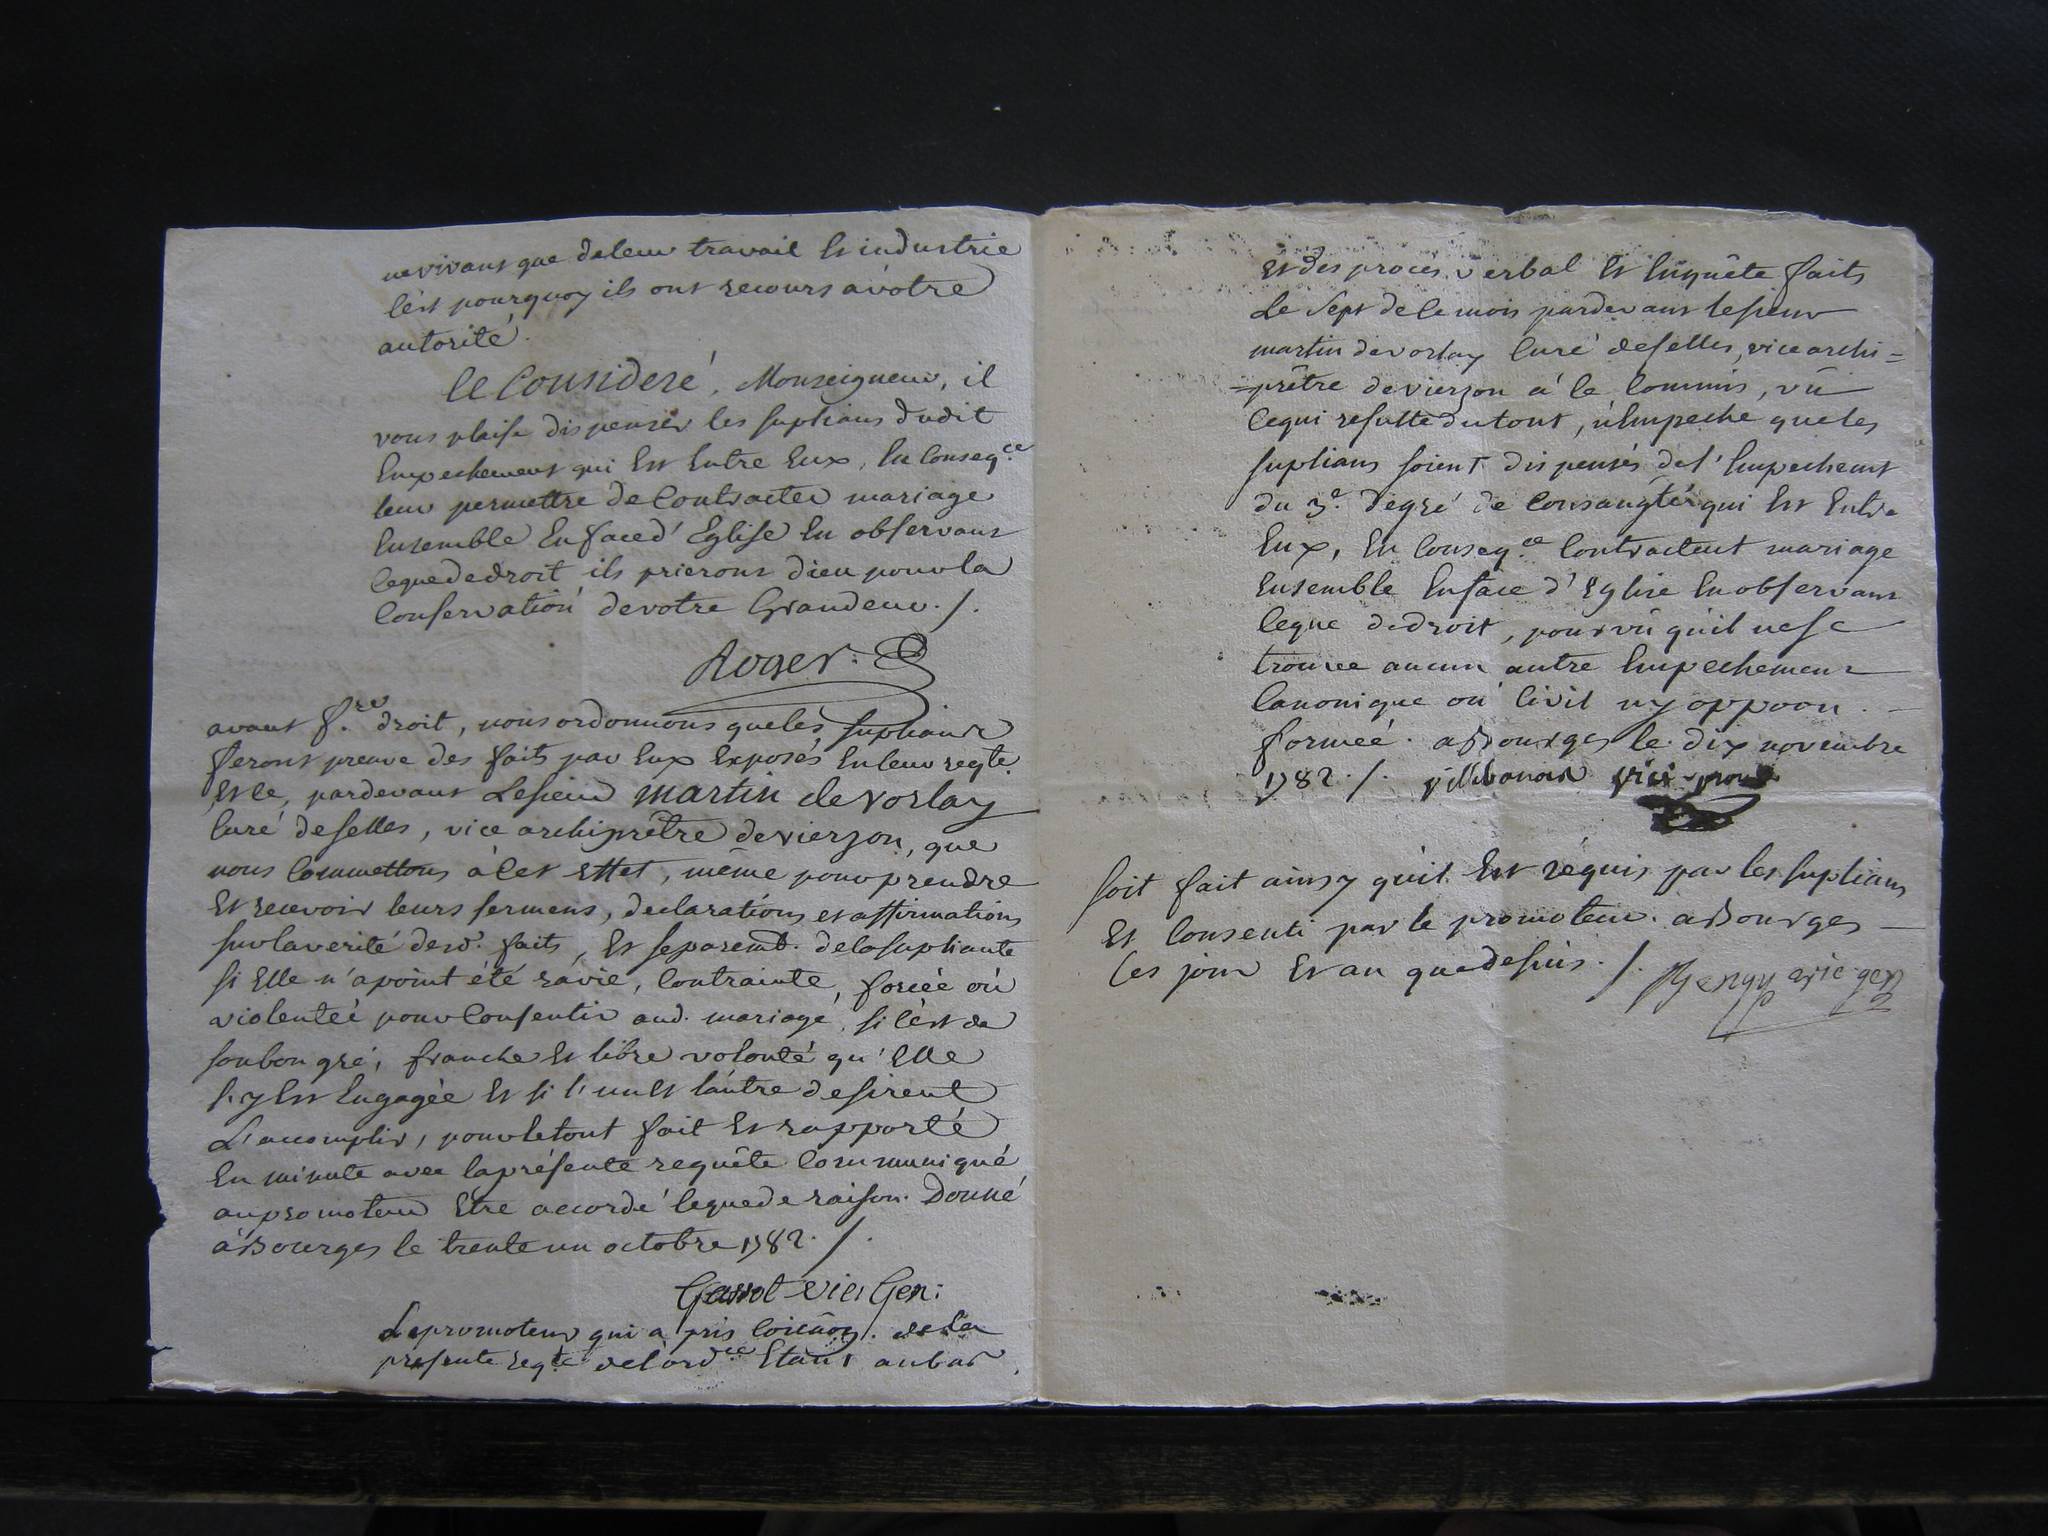 ne vivant que de leur travail et industrie
c'est pourquoy ils ont recours a votre
autorité.
Ce Consideré, Monseigneur, il
vous plaise dispenser les suplians dudit
Empechement qui Est Entre Eux, En Conseq.ce
leur permettre de Contracter mariage
Ensemble En face d'Eglise En observant
ce que de droit ils prieront dieu pour la
Conservation de votre Grandeur. /.
Roger.
avant f.re droit, nous ordonnons que les suplians
feront preuve des faits par Eux Exposés En leur reqte.
Et ce, pardevant Le sieur martin de vorlay
Curé de selles, vice archiprêtre de vierzon, que
nous Commettons à cet Effet, même pour prendre
Et recevoir leurs sermens, declarations et affirmations
sur la verité desd. faits, Et separemt. de la supliante
si Elle n'a point été ravie, Contrainte, forcée où
violenteé pour Consentir aud. mariage, si c'est de
son bon gré, franche Et libre volonté qu'Elle
s'y Est Engagée Et si l'un Et l'autre desirent
L'accomplir, pour le tout fait Et rapporté
En minute avec la présente requête Communiqué
au promoteur Etre accordé ce que de raison. Donné
à Bourges le trente un octobre 1782. /.
Gassot vic. Gen:
Le promoteur qui a pris Coicaôn. de la
presente reqte. de l'ord.ce Etant au bas
Et des procès verbal Et Enquête faits
Le sept de ce mois pardevant le sieur
martin de vorlay Curé de selles, vice archi=
=prêtre de vierzon à ce Commis, vû
ce qui resulte du tout, n'Empeche que les
suplians soient dispensés de l'Empechemt
du 3.e dégré de Consangté. qui Est Entre
Eux, En Conseq.ce Contractent mariage
Ensemble En face d'Eglise En observant
ce que de droit, pourvû qu'il ne se
trouve aucun autre Empechement
Canonique ou Civil ny oppoon.
formeé. a Bourges le dix novembre
1782. /. vice prom
soit fait ainsy qu'il Est réquis par les suplians
Et Consenti par le promoteur. a Bourges
Ces jour Et an que dessus. /. vic gen